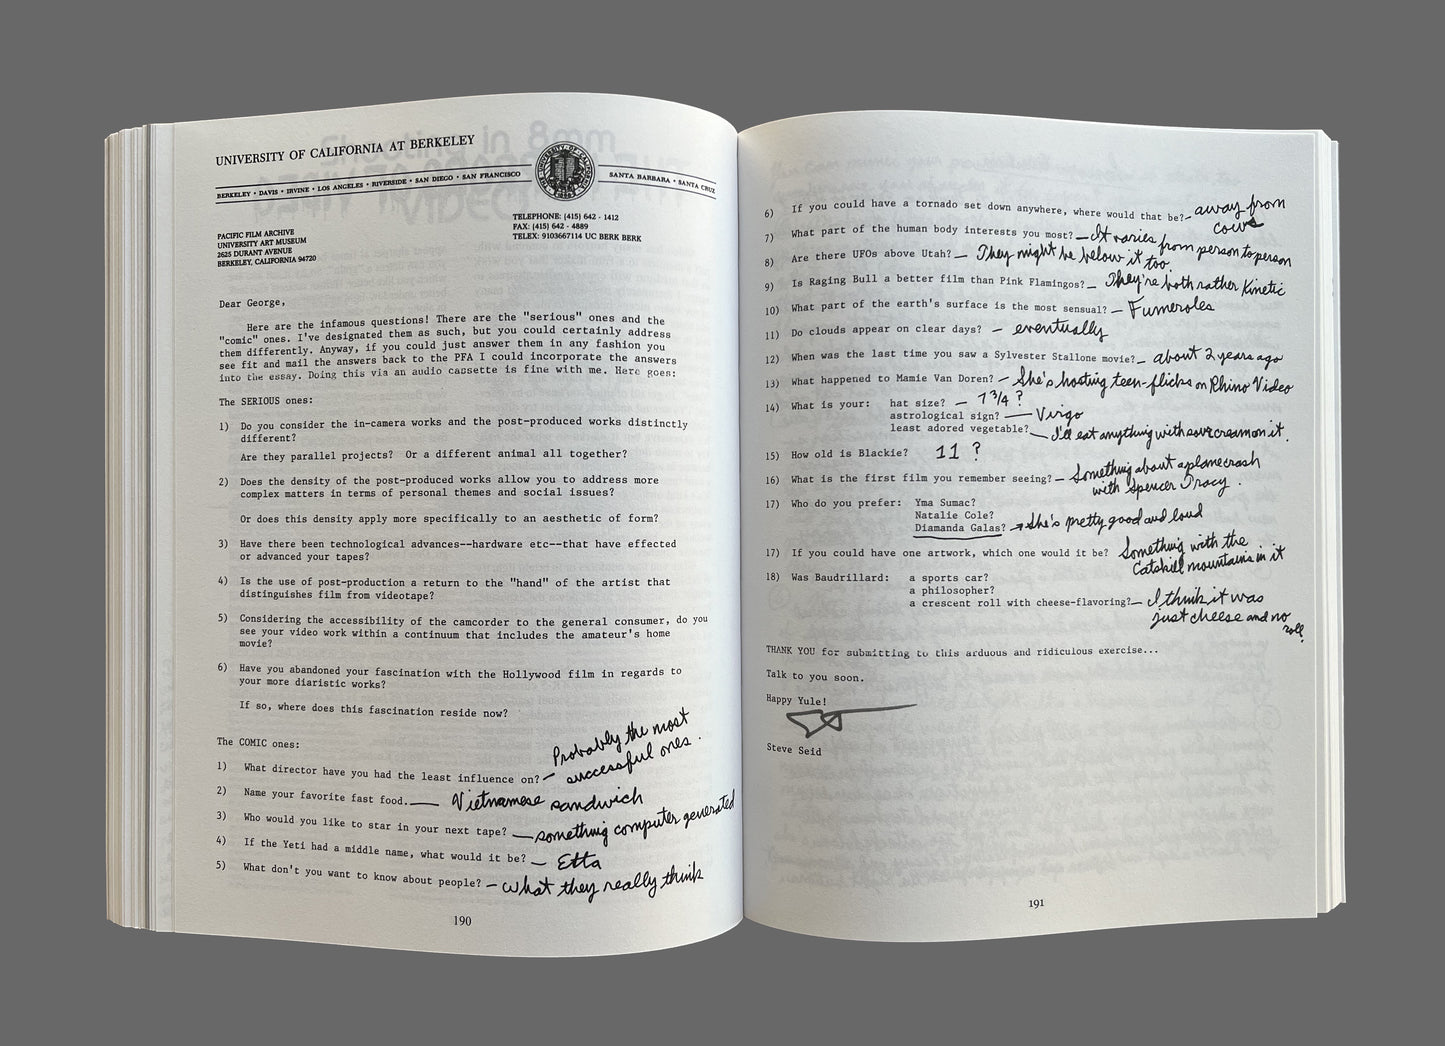 UNIVERSITY OF CALIFORNIA AT BERKELEY
BERKELEY • DAVIS • IRVINE • LOS ANGELES • RIVERSIDE • SAN DIEGO • SAN FRANCISCO
SANTA BARBARA • SANTA CRUZ
PACIFIC FILM ARCHIVE
UNIVERSITY ART MUSEUM
2625 DURANT AVENUE
BERKELEY, CALIFORNIA 94720
TELEPHONE: (415) 642 - 1412
FAX: (415) 642 - 4889
TELEX: 9103667114 UC BERK BERK
Dear George,
Here are the infamous questions! There are the "serious" ones and the
"comic" ones. I've designated them as such, but you could certainly address
them differently. Anyway, if you could just answer them in any fashion you
see fit and mail the answers back to the PFA I could incorporate the answers
into the essay. Doing this via an audio cassette is fine with me. Here goes:
The SERIOUS ones:
1) Do you consider the in-camera works and the post-produced works distinctly
different?
Are they parallel projects? Or a different animal all together?
2) Does the density of the post-produced works allow you to address more
complex matters in terms of personal themes and social issues?
Or does this density apply more specifically to an aesthetic of form?
3) Have there been technological advances--hardware etc--that have effected
or advanced your tapes?
4) Is the use of post-production a return to the "hand" of the artist that
distinguishes film from videotape?
5) Considering the accessibility of the camcorder to the general consumer, do you
see your video work within a continuum that includes the amateur's home
movie?
6) Have you abandoned your fascination with the Hollywood film in regards to
your more diaristic works?
If so, where does this fascination reside now?
The COMIC ones:
1) What director have you had the least influence on? – Probably the most
successful ones.
2) Name your favorite fast food. — Vietnamese sandwich
3) Who would you like to star in your next tape? — something computer generated
4) If the Yeti had a middle name, what would it be? – Etta
5) What don't you want to know about people? – what they really think
190
6) If you could have a tornado set down anywhere, where would that be? – away from
cows
7) What part of the human body interests you most? – It varies from person to person
8) Are there UFOs above Utah? – They might be below it too.
9) Is Raging Bull a better film than Pink Flamingos? – They're both rather Kinetic
10) What part of the earth's surface is the most sensual? – Fumeroles
11) Do clouds appear on clear days? – eventually
12) When was the last time you saw a Sylvester Stallone movie? – about 2 years ago
13) What happened to Mamie Van Doren? – She's hosting teen-flicks on Rhino Video
14) What is your: hat size? – 7 3/4 ?
astrological sign? — Virgo
least adored vegetable? – I'll eat anything with sour cream on it.
15) How old is Blackie? 11 ?
16) What is the first film you remember seeing? – Something about a plane crash
with Spencer Tracy.
17) Who do you prefer: Yma Sumac?
Natalie Cole?
Diamanda Galas? → She's pretty good and loud
17) If you could have one artwork, which one would it be? Something with the
Catskill mountains in it
18) Was Baudrillard: a sports car?
a philosopher?
a crescent roll with cheese-flavoring? – I think it was
just cheese and no
roll.
THANK YOU for submitting to this arduous and ridiculous exercise...
Talk to you soon.
Happy Yule!
Steve Seid
191